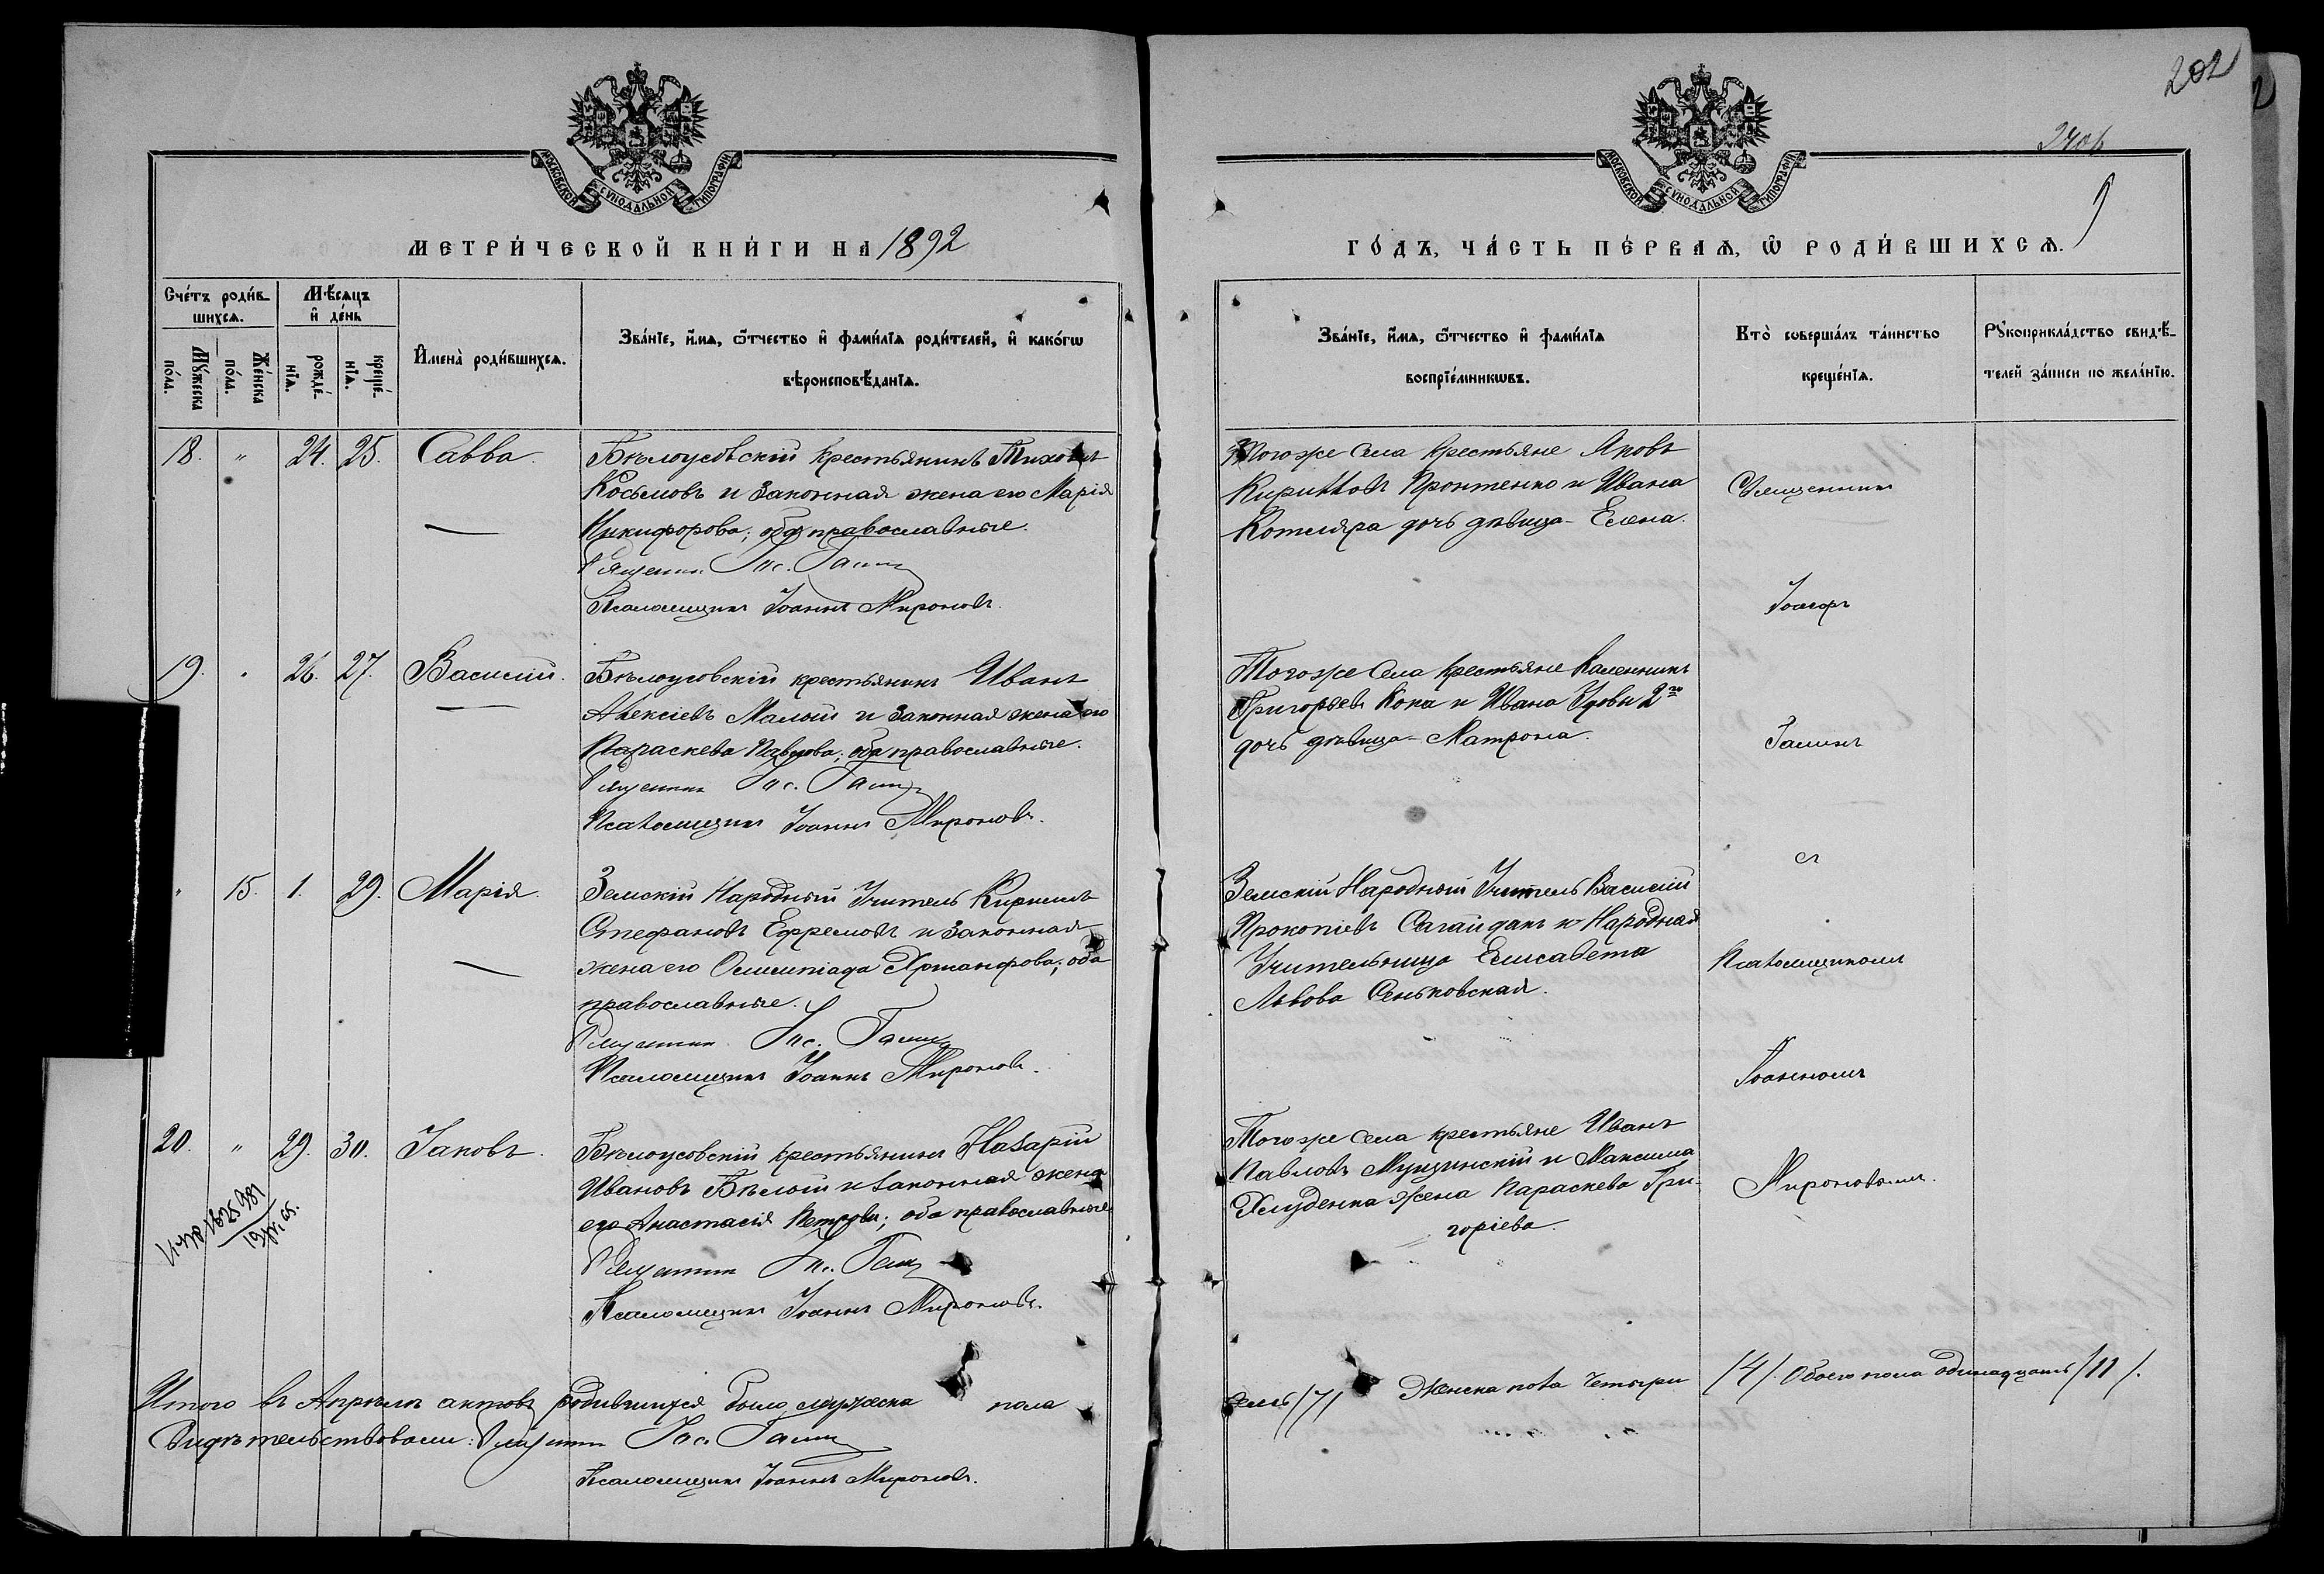 202
2406
МОСКОВСКОЙ СУНОДАЛЬНОЙ ТИПОГРАФІИ
МОСКОВСКОЙ СУНОДАЛЬНОЙ ТИПОГРАФІИ
МЕТРИ́ЧЕСКОЙ КНИ́ГИ НА 1892
ГО́ДЪ, ЧА́СТЬ ПЕ́РВАѦ, Ѿ РОДИ́ВШИХСѦ.
Сче́тъ роди́в-
шихсѧ.
Мꙋ́жеска
по́ла.
Же́нска
по́ла.
Мѣ́сѧцъ
и҆ де́нь
рожде́-
нїѧ.
креще́-
нїѧ.
И҆мена̀ роди́вшихсѧ.
Зва́нїе, и҆́мѧ, ѻ҆́тчество и҆ фами́лїѧ роди́телей, и҆ како́гѡ
вѣроисповѣ́данїѧ.
Зва́нїе, и҆́мѧ, ѻ҆́тчество и҆ фами́лїѧ
воспрїе́мникѡвъ.
Кто̀ соверша́лъ та́инство
креще́нїѧ.
Рꙋкоприкла́дство свидѣ́-
телей за́писи по жела́нїю.
18. " 24. 25. Савва.
Бѣлоусовскій крестьянинъ Тихонъ
Косьмовъ и законная жена его Марія
Никифорова; оба православные.
Священникъ
Псаломщикъ Іоаннъ Мироновъ.
Того же села крестьяне Яковъ
Кирилловъ Пронтенко и Ивана
Котляра дочь дѣвица - Елена.
Священникъ
19. " 26. 27. Василій.
Бѣлоусовскій крестьянинъ Иванъ
Алексіевъ Малый и законная жена его
Параскева Павлова; оба православные.
Священникъ
Псаломщикъ Іоаннъ Мироновъ.
Того же села крестьяне Каленникъ
Григорьевъ Кока и Ивана Удовы 2го
дочь дѣвица - Матрона.
съ
" 15. 1. 29. Марія.
Земскій Народный Учитель Кириллъ
Стефановъ Ефремовъ и законная
жена его Олимпіада; оба
православные.
Священникъ
Псаломщикъ Іоаннъ Мироновъ.
Земскій Народный Учитель Василій
Прокопіевъ Сагайдакъ и Народная
Учительница Елисавета
Львова Сеньковская.
Псаломщикомъ
Іоанномъ
20. " 29. 30. Іаковъ.
Бѣлоусовскій крестьянинъ Назарій
Ивановъ Бѣлый и законная жена
его Анастасія Петрова; оба православные.
Священникъ
Псаломщикъ Іоаннъ Мироновъ.
Того же села крестьяне Иванъ
Павловъ Мущинскій и Максима
Хлуденка жена Параскева Гри-
горіева.
Мироновымъ.
Итого въ Апрѣлѣ актовъ родившихся было мужеска пола семь /7/ Женска пола четыри /4/. Обоего пола одинадцать /11/.
Свидѣтельствовали: Священникъ
Псаломщикъ Іоаннъ Мироновъ.